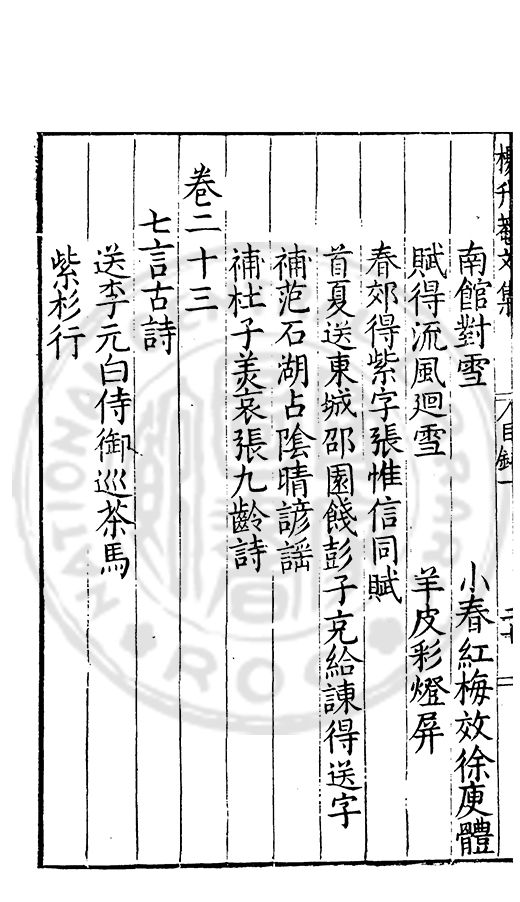 楊升菴文集 目錄
南館對雪 小春紅梅效徐庾體
賦得流風廻雪 羊皮彩燈屏
春郊得紫字張惟信同賦
首夏送東城邵園餞彭子充給諫得送字
補范石湖占陰晴諺謡
補杜子美哀張九齡詩
卷二十三
七言古詩
送李元白侍御巡茶馬
紫杉行